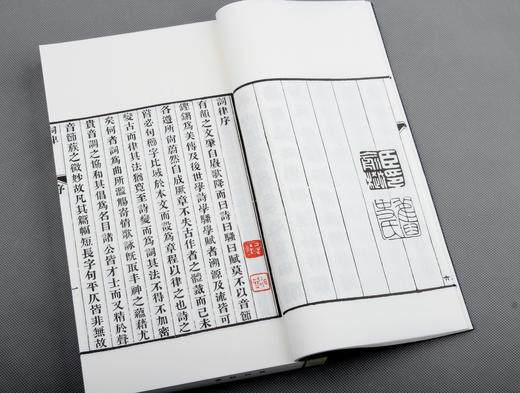 詞律序
有韻之文肇自賡歌降而曰詩曰騷曰賦莫不以音節
鏗鏘爲美傳及後世學詩學騷學賦者溯源及流皆可
各遵所尚蔚然自成厥章不失古作者之體裁而已未
嘗必句櫛字比域於本文而設爲章程以律之也詩之
變古而律其法猶寬至詩變而爲詞其法不得不加密
矣何者詞爲曲所濫觴寄情歌詠旣取丰神之蘊藉尤
貴音調之協和其倡爲名目諸公皆才士而又精於聲
音節族之微妙故凡其篇幅短長字句平仄皆非無故
詞律 序